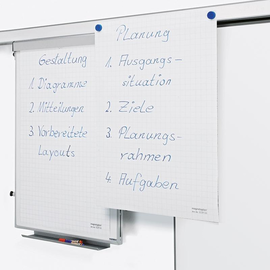 Gestaltung
1. Diagramme
2. Mitteilungen
3 Vorbereitete
Layouts
Planung
1. Ausgangs-
situation
2. Ziele
3. Planungs-
rahmen
4. Aufgaben